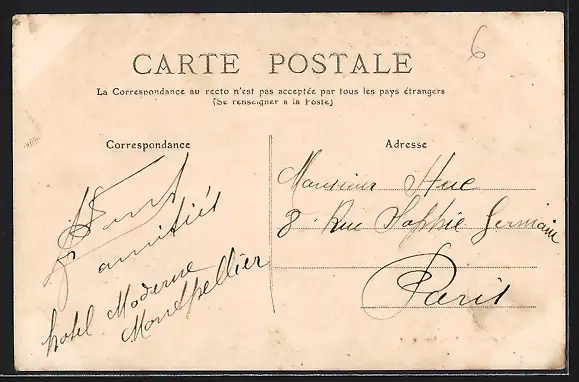 6
CARTE POSTALE
La Correspondance au recto n'est pas acceptée par tous les pays étrangers
(Se renseigner à la Poste)
Correspondance
amitiés
hotel Moderne
Montpellier
Adresse
Monsieur Huc
8. Rue Sophie Germain
Paris